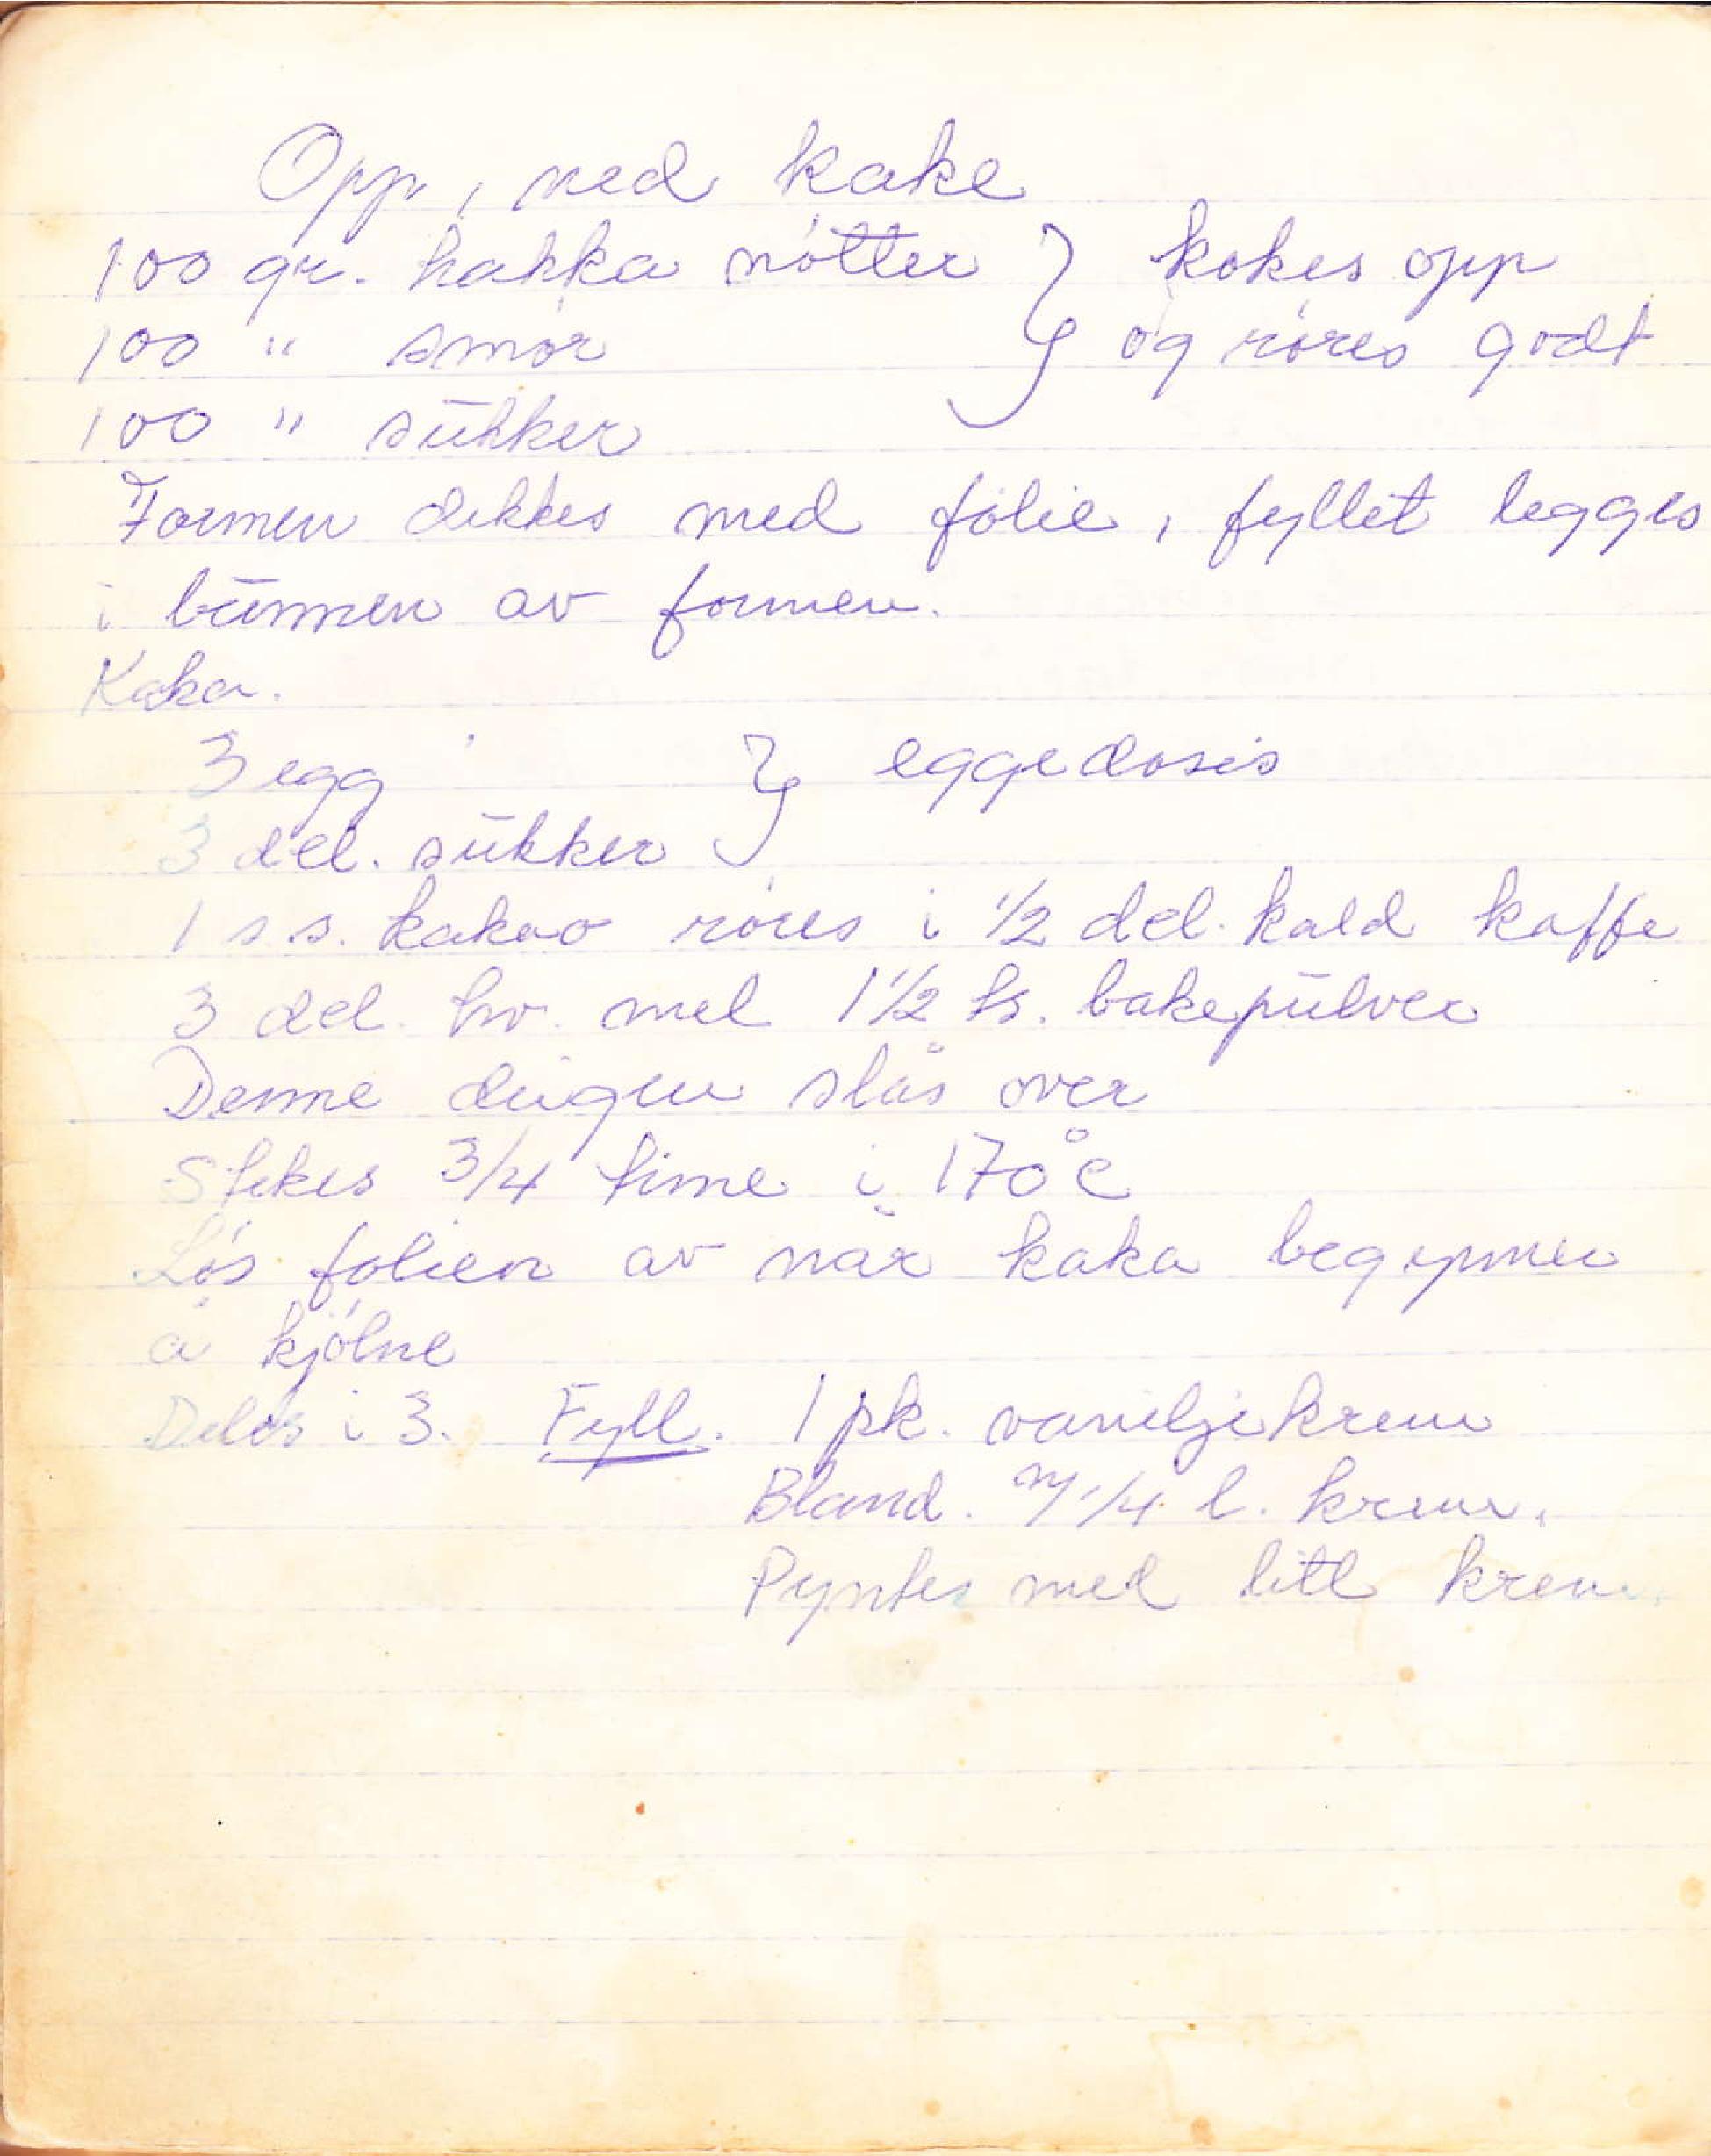 Opp, ned kake
100 gr. hakka nøtter } kokes opp
100 " smør } og røres godt
100 " sukker
Formen dekkes med folie, fyllet legges
i bunnen av formen.
Kaka.
3 egg } eggedosis
3 del. sukker
1 s.s. kakao røres i 1/2 del. kald kaffe
3 del. hv. mel 1 1/2 ts. bakepulver
Denne deigen slås over
Stekes 3/4 time i 170°C
Løs folien av når kaka begynner
å kjølne
Deles i 3. Fyll. 1 pk. vaniljekrem
Bland. m/ 1/4 l. krem.
Pyntes med litt krem.